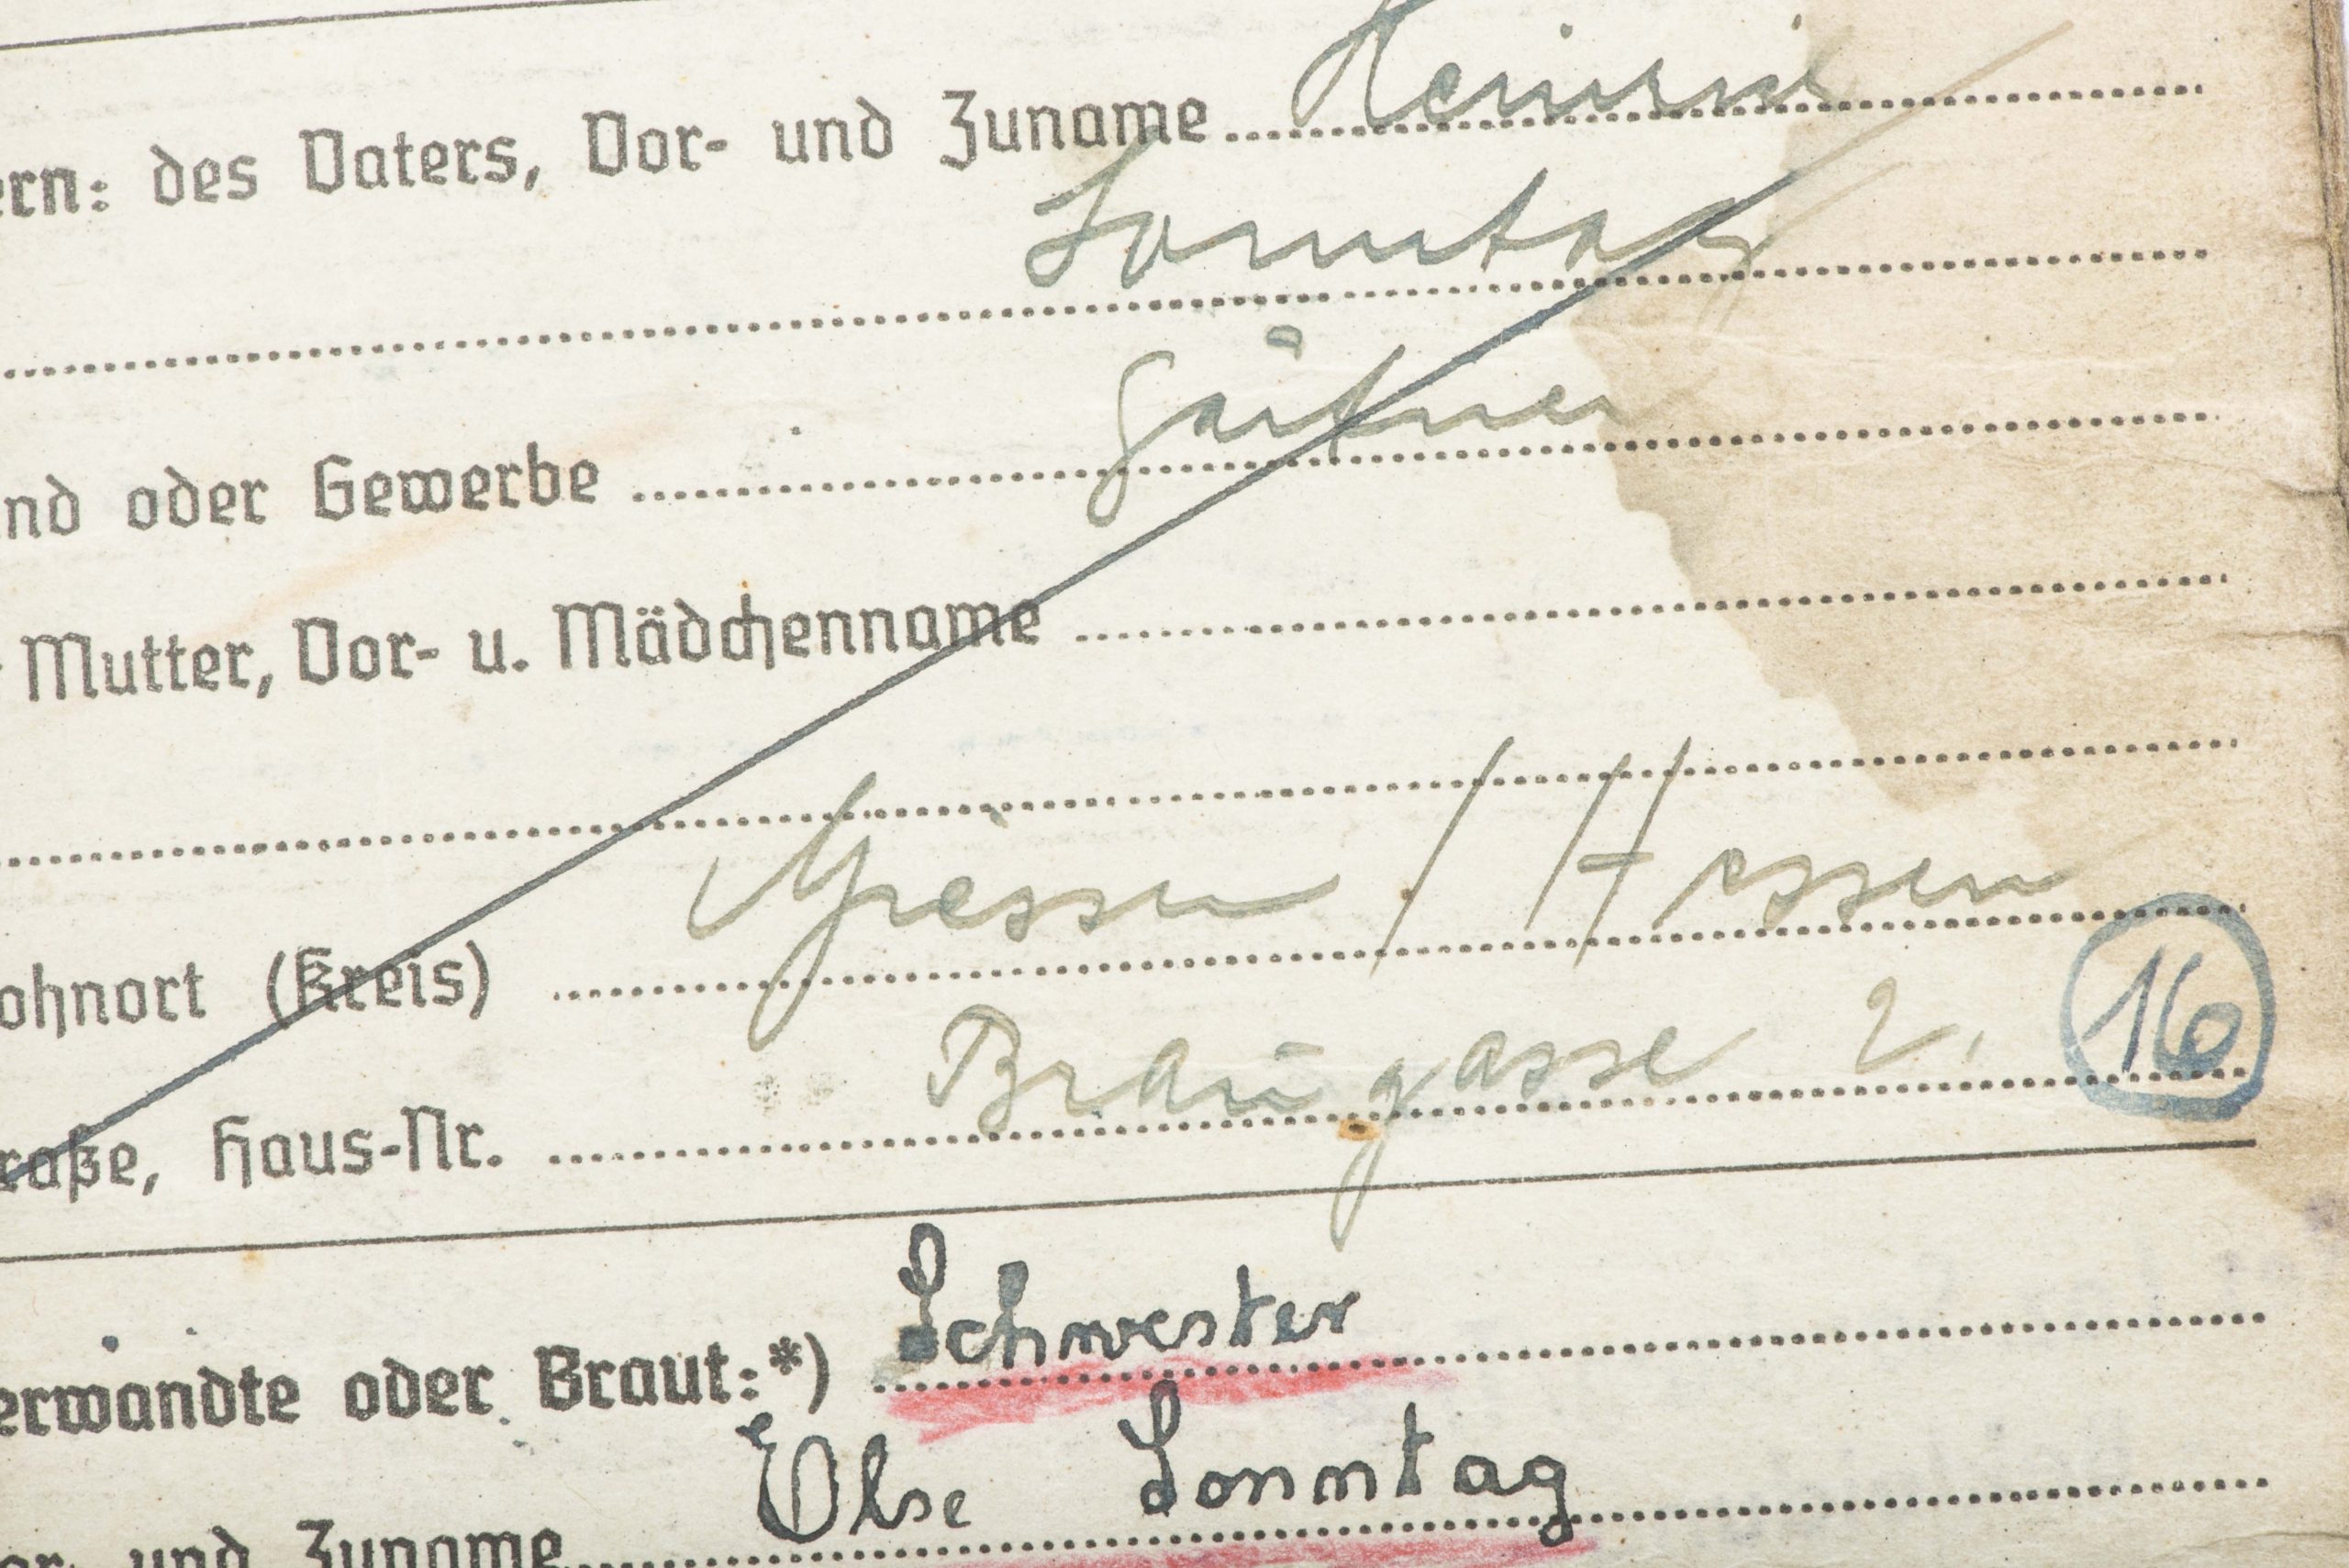 ern: des Vaters, Vor- und Zuname Heinrich
Sonntag
nd oder Gewerbe Gärtner
Mutter, Vor- u. Mädchenname
ohnort (Kreis) Giessen / Hessen
raße, Haus-Nr. Braugasse 2. 16
erwandte oder Braut:*) Schwester
Else Sonntag
or- und Zuname